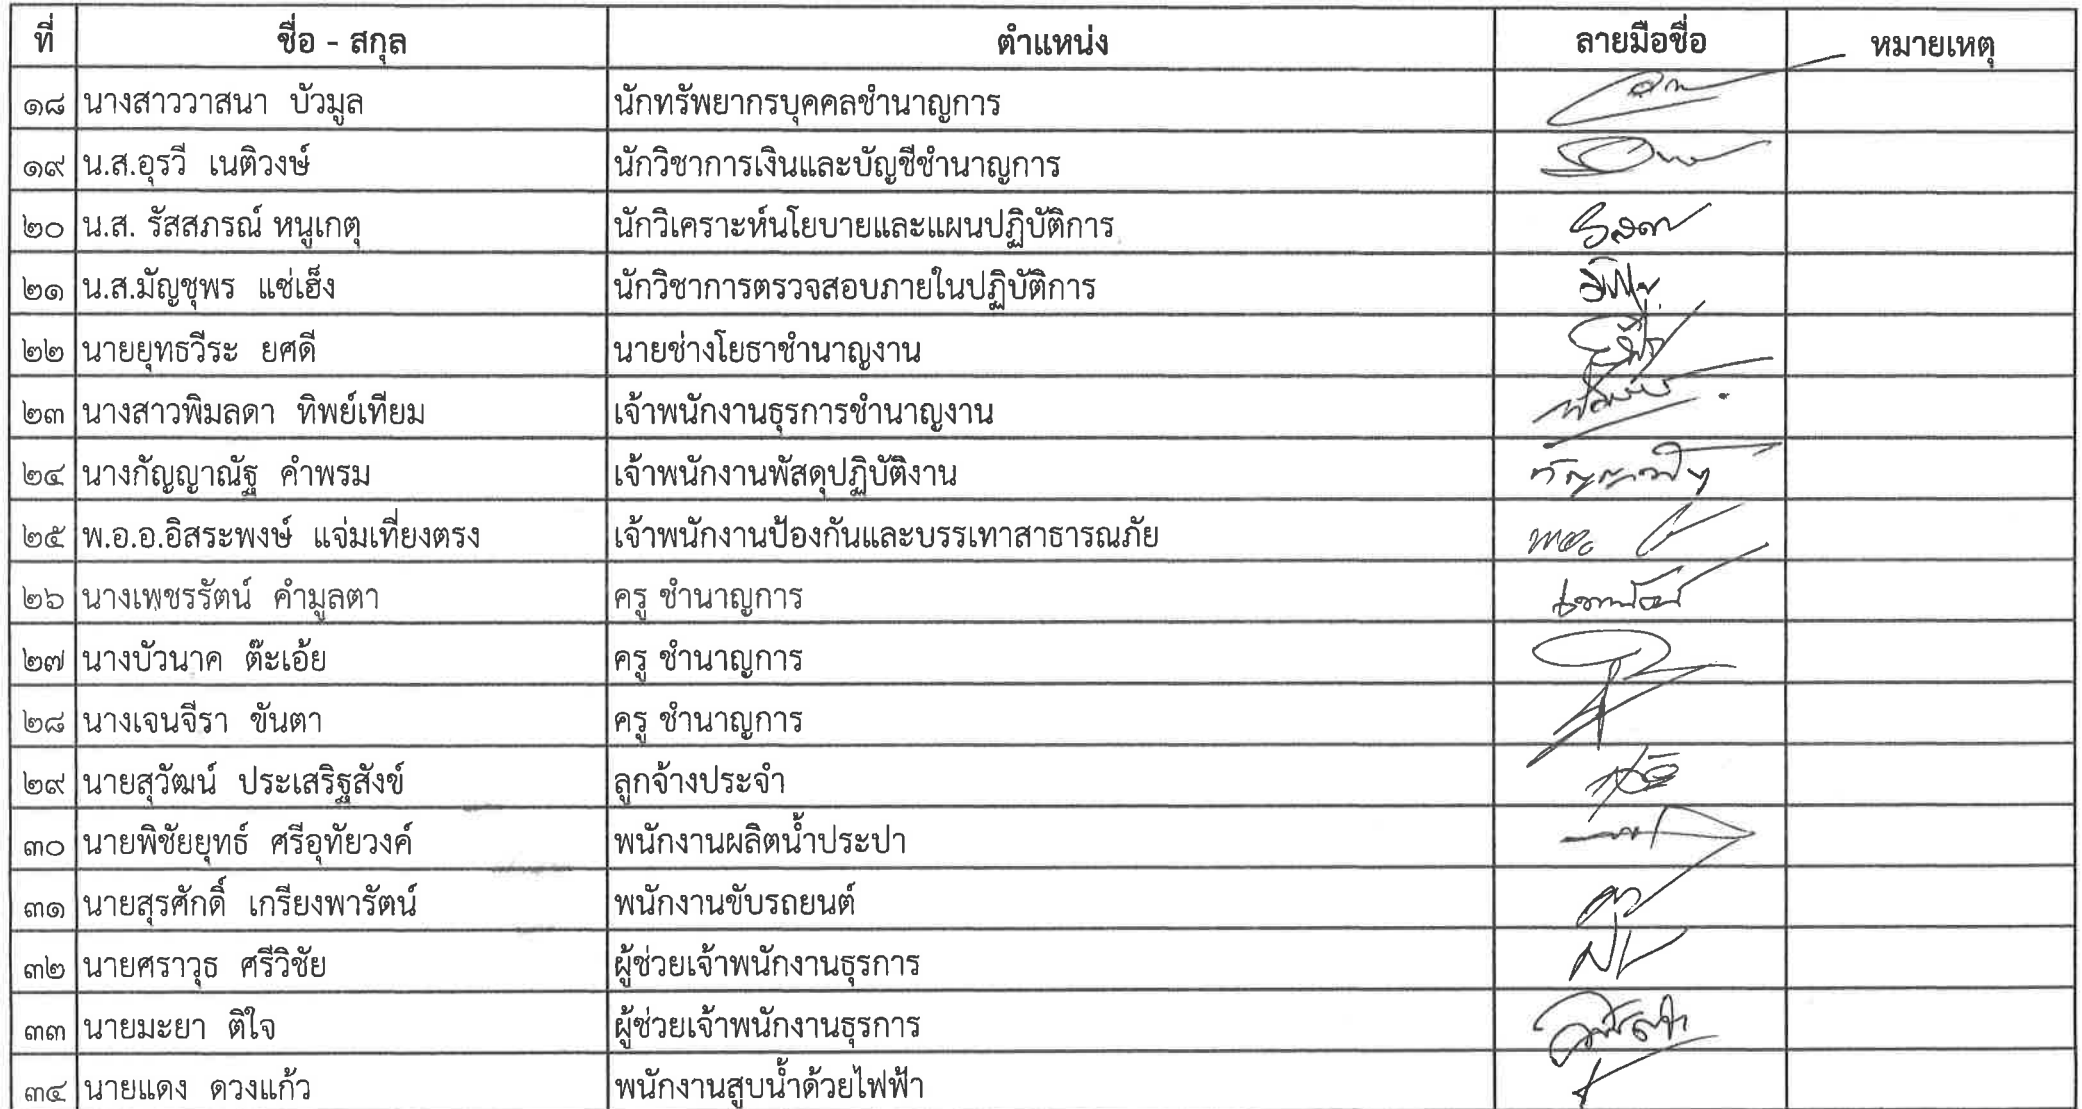 ที่ ชื่อ - สกุล ตำแหน่ง ลายมือชื่อ หมายเหตุ
๑๘ นางสาววาสนา บัวมูล นักทรัพยากรบุคคลชำนาญการ
๑๙ น.ส.อุรวี เนติวงษ์ นักวิชาการเงินและบัญชีชำนาญการ
๒๐ น.ส. รัสสภรณ์ หนูเกตุ นักวิเคราะห์นโยบายและแผนปฏิบัติการ
๒๑ น.ส.มัญชุพร แซ่เฮ็ง นักวิชาการตรวจสอบภายในปฏิบัติการ
๒๒ นายยุทธวีระ ยศดี นายช่างโยธาชำนาญงาน
๒๓ นางสาวพิมลดา ทิพย์เทียม เจ้าพนักงานธุรการชำนาญงาน
๒๔ นางกัญญาณัฐ คำพรม เจ้าพนักงานพัสดุปฏิบัติงาน
๒๕ พ.อ.อ.อิสระพงษ์ แจ่มเที่ยงตรง เจ้าพนักงานป้องกันและบรรเทาสาธารณภัย
๒๖ นางเพชรรัตน์ คำมูลตา ครู ชำนาญการ
๒๗ นางบัวนาค ต๊ะเอ้ย ครู ชำนาญการ
๒๘ นางเจนจีรา ขันตา ครู ชำนาญการ
๒๙ นายสุวัฒน์ ประเสริฐสังข์ ลูกจ้างประจำ
๓๐ นายพิชัยยุทธ์ ศรีอุทัยวงค์ พนักงานผลิตน้ำประปา
๓๑ นายสุรศักดิ์ เกรียงพารัตน์ พนักงานขับรถยนต์
๓๒ นายศราวุธ ศรีวิชัย ผู้ช่วยเจ้าพนักงานธุรการ
๓๓ นายมะยา ติใจ ผู้ช่วยเจ้าพนักงานธุรการ
๓๔ นายแดง ดวงแก้ว พนักงานสูบน้ำด้วยไฟฟ้า